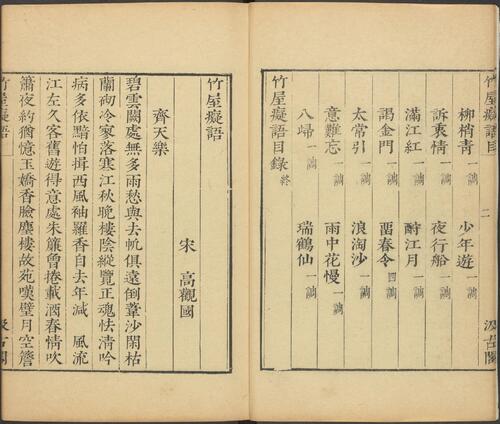 竹屋癡語目 二 汲古閣
柳梢青一調 少年遊一調
訴衷情一調 夜行船一調
滿江紅一調 酹江月一調
謁金門一調 畱春令四調
太常引一調 浪淘沙一調
意難忘一調 雨中花慢一調
八歸一調 瑞鶴仙一調
竹屋癡語目錄終
竹屋癡語
宋 高觀國
齊天樂
碧雲闕處無多雨愁與去帆俱遠倒葦沙閒枯
蘭砌冷寥落寒江秋晚樓陰縱覽正魂怯清吟
病多依黯怕揖西風袖羅香自去年減 風流
江左久客舊遊得意處朱簾曾捲載酒春情吹
簫夜約猶憶玉嬌香臉塵樓故苑嘆璧月空簷
竹屋癡語 一 汲古閣